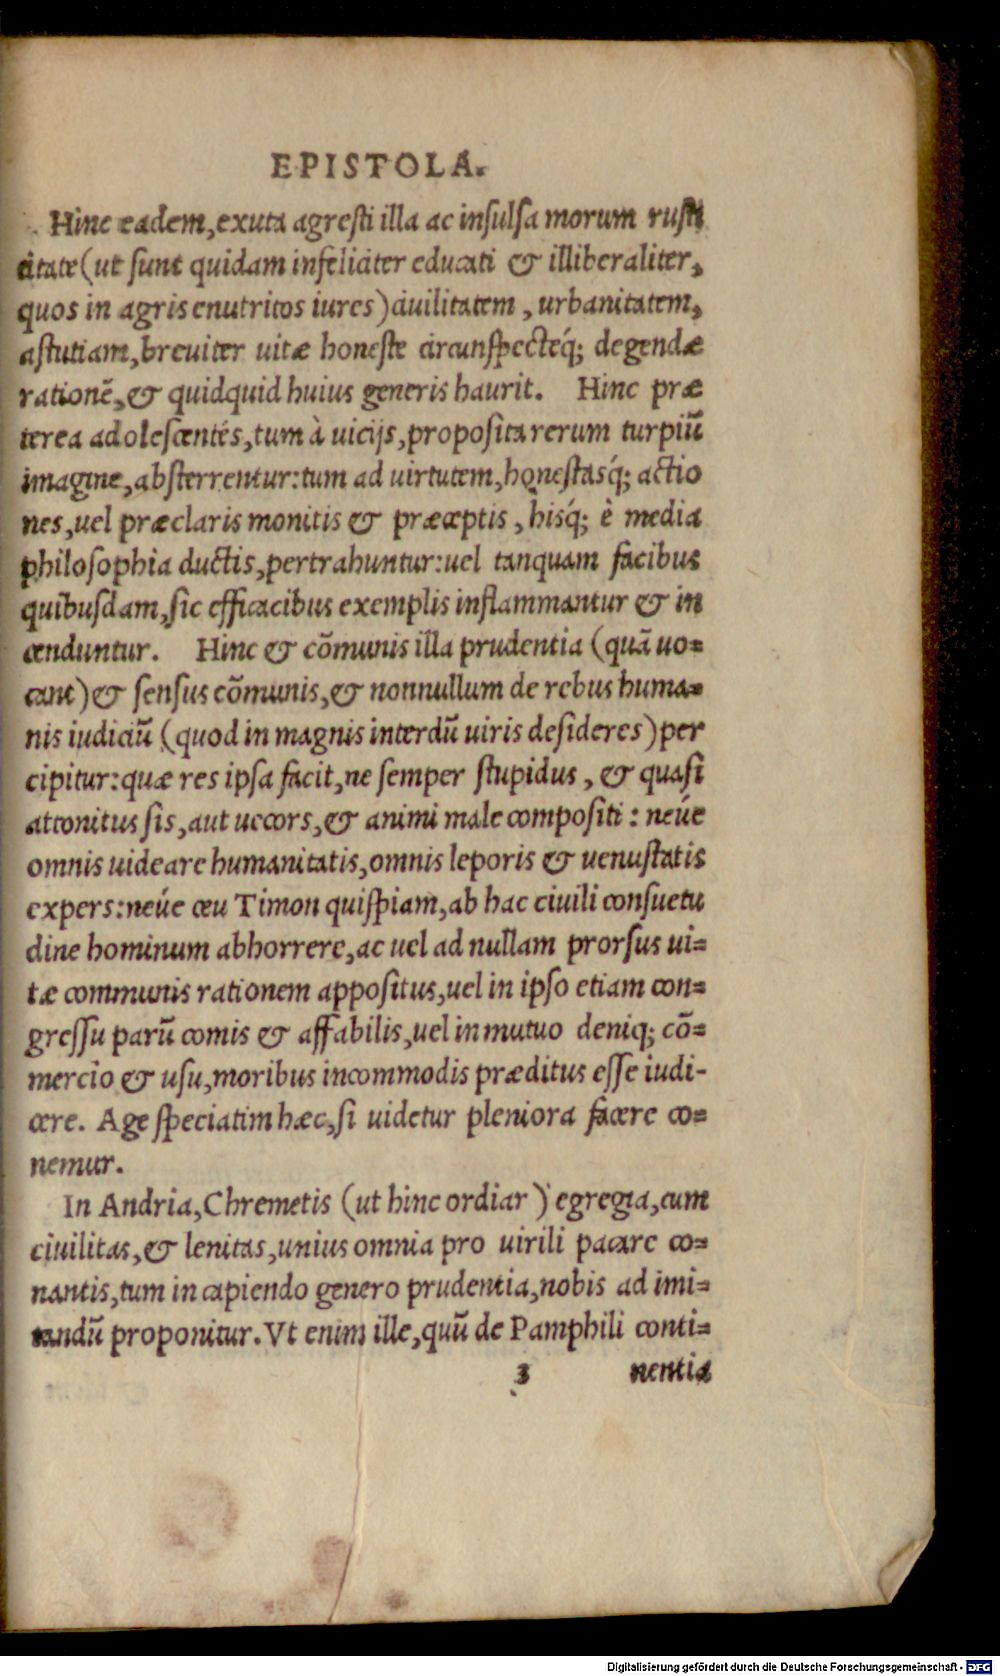 EPISTOLA.
Hinc eadem, exuta agresti illa ac insulsa morum rusti
citate (ut sunt quidam infeliciter educati & illiberaliter,
quos in agris enutritos iures) ciuilitatem, urbanitatem,
astutiam, breuiter uitæ honeste circunspecteq́; degendæ
rationẽ, & quidquid huius generis haurit. Hinc præ
terea adolescentes, tum à uicijs, proposita rerum turpiũ
imagine, absterrentur: tum ad uirtutem, honestasq́; actio
nes, uel præclaris monitis & præceptis, hisq́; è media
philosophia ductis, pertrahuntur: uel tanquam facibus
quibusdam, sic efficacibus exemplis inflammantur & in
cenduntur. Hinc & cõmunis illa prudentia (quã uo-
cant) & sensus cõmunis, & nonnullum de rebus huma-
nis iudiciũ (quod in magnis interdũ uiris desideres) per
cipitur: quæ res ipsa facit, ne semper stupidus, & quasi
attonitus sis, aut uecors, & animi male compositi: neúe
omnis uideare humanitatis, omnis leporis & uenustatis
expers: neúe ceu Timon quispiam, ab hac ciuili consuetu
dine hominum abhorrere, ac uel ad nullam prorsus ui-
tæ communis rationem appositus, uel in ipso etiam con-
gressu parũ comis & affabilis, uel in mutuo deniq; cõ-
mercio & usu, moribus incommodis præditus esse iudi-
cere. Age speciatim hæc, si uidetur pleniora facere co-
nemur.
In Andria, Chremetis (ut hinc ordiar) egregia, cum
ciuilitas, & lenitas, unius omnia pro uirili pacare co-
nantis, tum in capiendo genero prudentia, nobis ad imi-
tandũ proponitur. Vt enim ille, quũ de Pamphili conti-
3 nentia
Digitalisierung gefördert durch die Deutsche Forschungsgemeinschaft - DFG